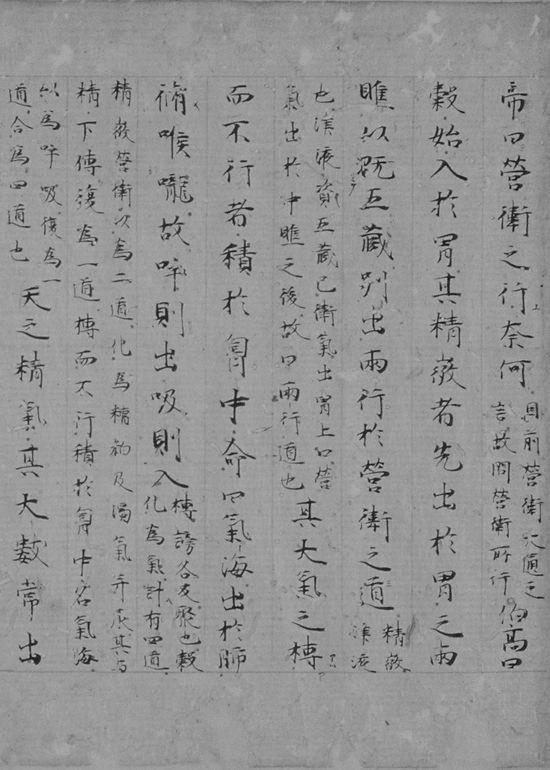 帝曰營衛之行奈何因前營衛大通之
言故問營衛所行伯高曰
穀始入於胃其精微者先出於胃之兩
瞧以溉五藏別出兩行於營衛之道精微
津液
也津液資五藏已衛氣出胃上口營
氣出於中瞧之後故曰兩行道也其大氣之槫
而不行者積於胷中命曰氣海出於肺
循喉嚨故呼則出吸則入槫謗各反聚也穀
化為氣計有四道
精微營衛以為二道化為糟粕及濁氣并尿其与
精下傳復為一道槫而不行積於胷中名氣海
以為呼吸復為一
道合為四道也天之精氣其大數常出